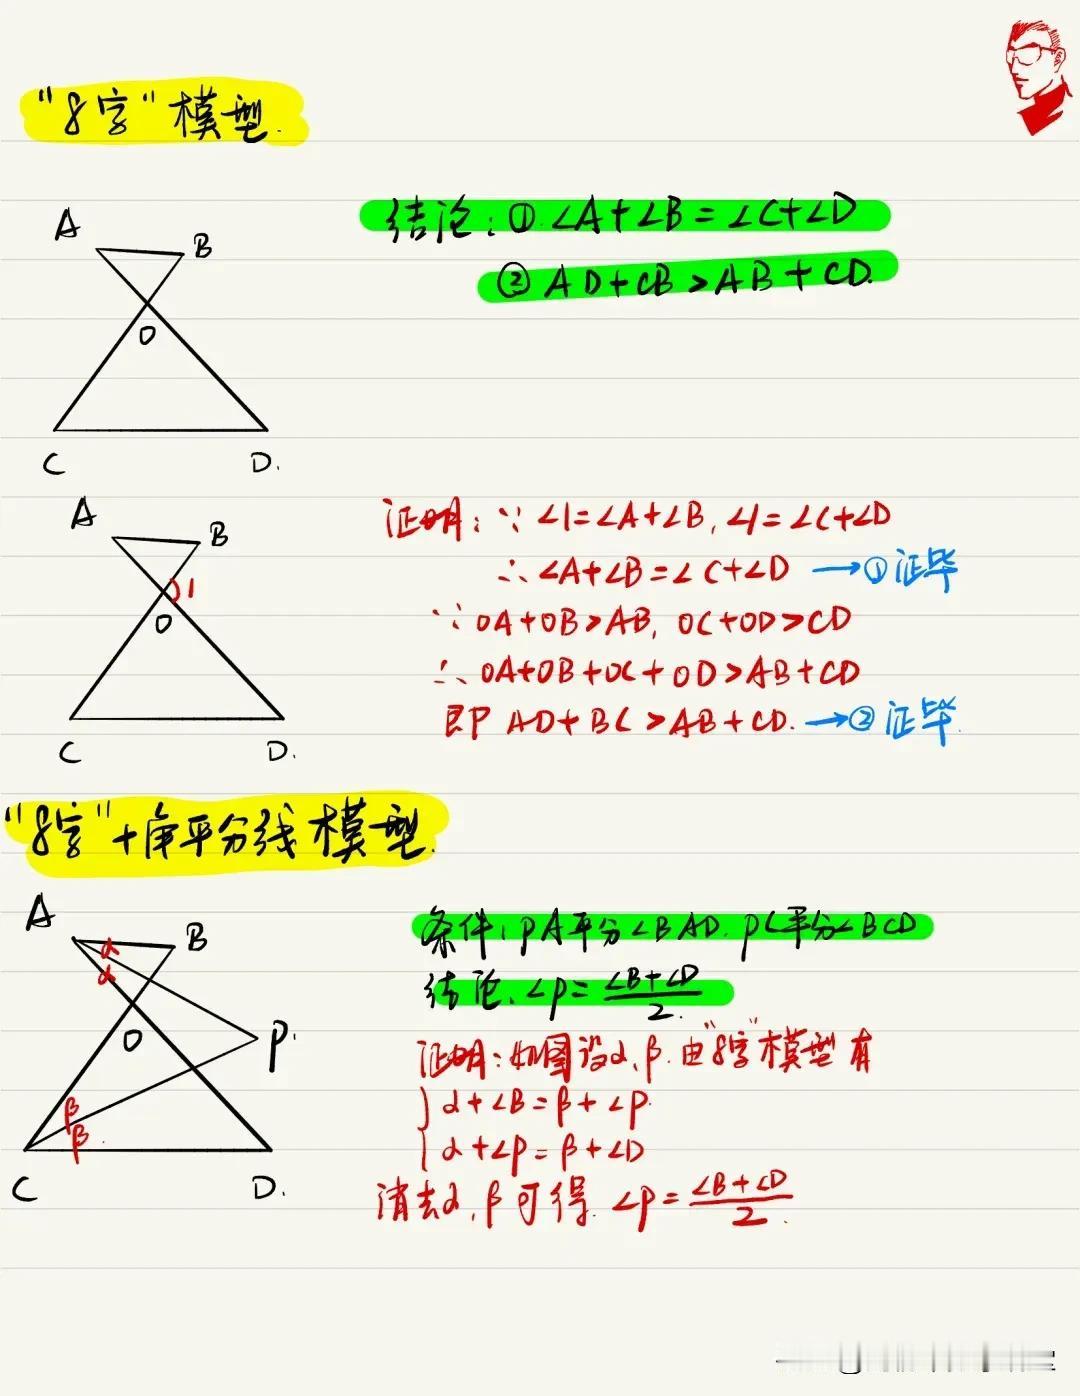 "8字"模型.
结论:①.∠A+∠B=∠C+∠D
②AD+CB>AB+CD.
A
B
O
C
D.
A
B
1
O
C
D.
证明:∵∠1=∠A+∠B,∠1=∠C+∠D
∴∠A+∠B=∠C+∠D →①证毕
∵OA+OB>AB,OC+OD>CD
∴OA+OB+OC+OD>AB+CD
即 AD+BC>AB+CD. →②证毕.
"8字"+角平分线模型.
A
B
α
α
O
P.
β
β.
C
D.
条件:PA平分∠BAD.PC平分∠BCD
结论.∠P=(∠B+∠D)/2.
证明:如图设α、β.由"8字"模型有
{α+∠B=β+∠P.
{α+∠P=β+∠D
消去α,β可得.∠P=(∠B+∠D)/2.